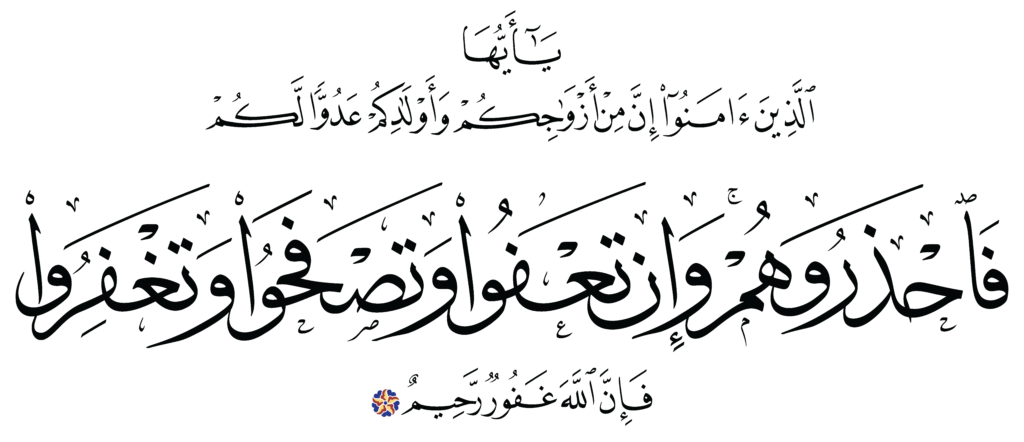 يَـٰٓأَيُّهَا
ٱلَّذِينَ ءَامَنُوٓا۟ إِنَّ مِنْ أَزْوَٰجِكُمْ وَأَوْلَـٰدِكُمْ عَدُوًّا لَّكُمْ
فَٱحْذَرُوهُمْ ۚ وَإِن تَعْفُوا۟ وَتَصْفَحُوا۟ وَتَغْفِرُوا۟
فَإِنَّ ٱللَّهَ غَفُورٌ رَّحِيمٌ